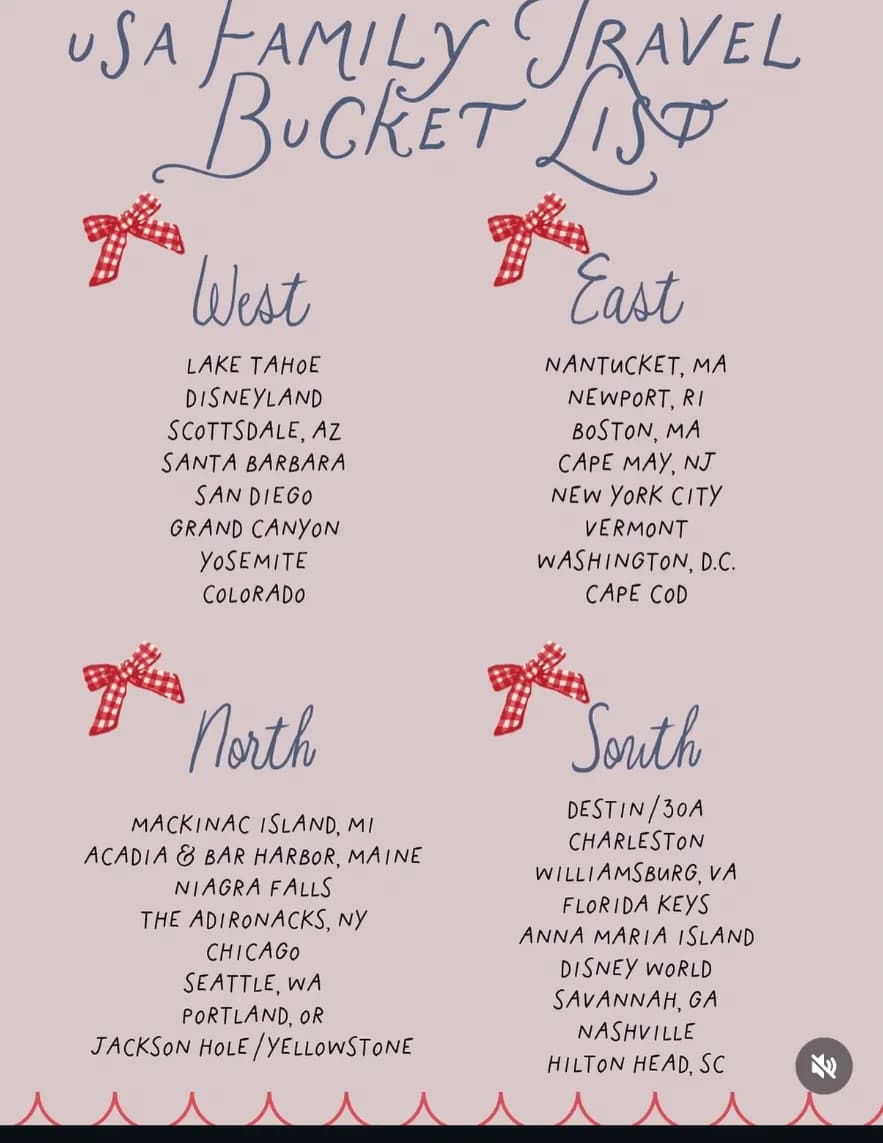 USA FAMILY TRAVEL
BUCKET LIST
West
LAKE TAHOE
DISNEYLAND
SCOTTSDALE, AZ
SANTA BARBARA
SAN DIEGO
GRAND CANYON
YOSEMITE
COLORADO
East
NANTUCKET, MA
NEWPORT, RI
BOSTON, MA
CAPE MAY, NJ
NEW YORK CITY
VERMONT
WASHINGTON, D.C.
CAPE COD
North
MACKINAC ISLAND, MI
ACADIA & BAR HARBOR, MAINE
NIAGRA FALLS
THE ADIRONACKS, NY
CHICAGO
SEATTLE, WA
PORTLAND, OR
JACKSON HOLE/YELLOWSTONE
South
DESTIN/30A
CHARLESTON
WILLIAMSBURG, VA
FLORIDA KEYS
ANNA MARIA ISLAND
DISNEY WORLD
SAVANNAH, GA
NASHVILLE
HILTON HEAD, SC